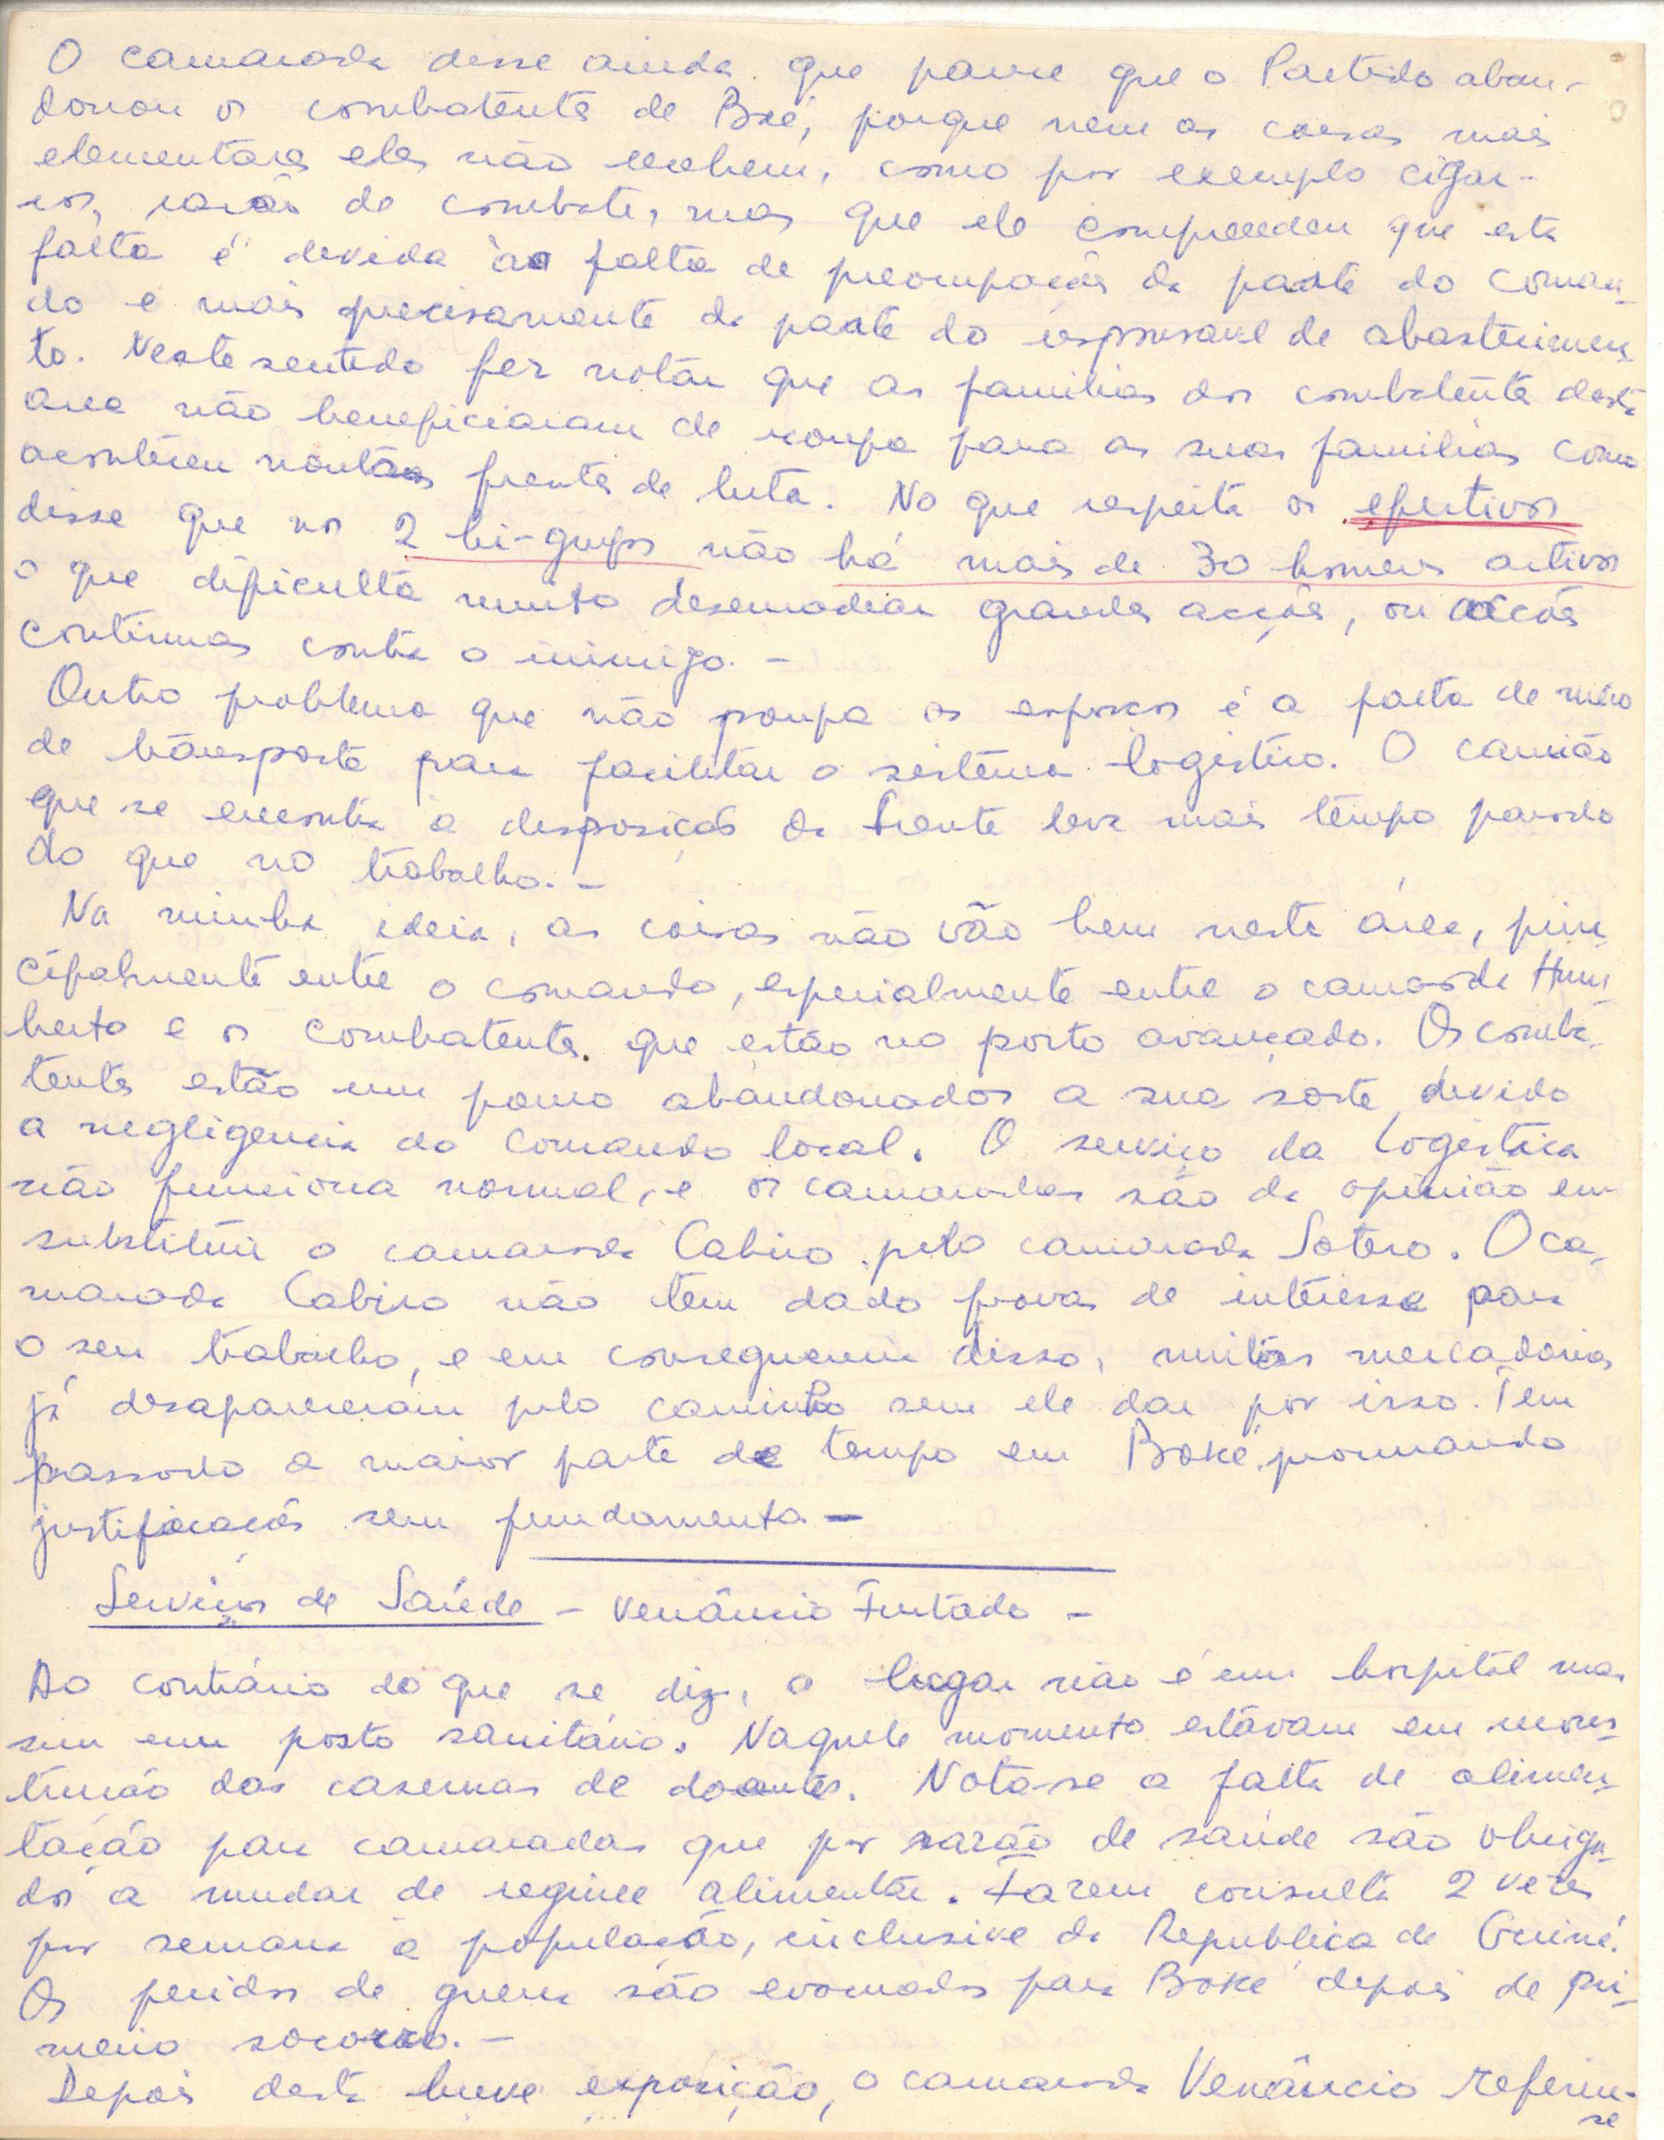 O camarada disse ainda que parece que o Partido aban-
donou os combatentes de Boé, porque nem as coisas mais
elementares eles não recebem, como por exemplo cigar-
ros, rações de combate, mas que ele compreendeu que esta
falta é devida ao falta de preocupação da parte do coman-
do e mais precisamente da parte do responsavel de abastecimen-
to. Neste sentido fez notar que as familias dos combatentes desta
area não beneficiaram de roupa para as suas familias como
aconteceu noutras frentes de luta. No que respeita os efectivos
disse que nos 2 bi-grupos não há mais de 30 homens activos
o que dificulta muito desencadear grandes acções, ou acções
continuas contra o inimigo. -
Outro problema que não poupa os esforços é a falta de meio
de transporte para facilitar o sistema logistico. O camião
que se encontra a disposição da Frente leva mais tempo parado
do que no trabalho. -
Na minha ideia, as coisas não vão bem nesta área, prin-
cipalmente entre o comando, especialmente entre o camarada Hum-
berto e os combatentes que estão no posto avançado. Os comba-
tentes estão um pouco abandonados a sua sorte devido
a negligencia do comando local. O serviço da Logistica
não funciona normal, e os camaradas são de opinião em
substituir o camarada Cabiro pelo camarada Sotero. O ca-
marada Cabiro não tem dado provas de interesse para
o seu trabalho, e em consequencia disso, muitas mercadorias
já desapareceram pelo caminho sem ele dar por isso. Tem
passado a maior parte de tempo em Boké procurando
justificações sem fundamento -
Serviços de Saúde - Venâncio Furtado -
Ao contrário do que se diz, o lugar não é um hospital mas
sim um posto sanitário. Naquele momento estávam em recons-
trução das casernas de doentes. Nota-se a falta de alimen-
tação para camaradas que por razão de saúde são obriga-
dos a mudar de regime alimentar. Fazem consulta 2 vezes
por semana a população, inclusive da Republica de Guiné.
Os feridos de guerra são evacuados para Boké depois de pri-
meiro socorro. -
Depois desta breve exposição, o camarada Venâncio referiu-
se